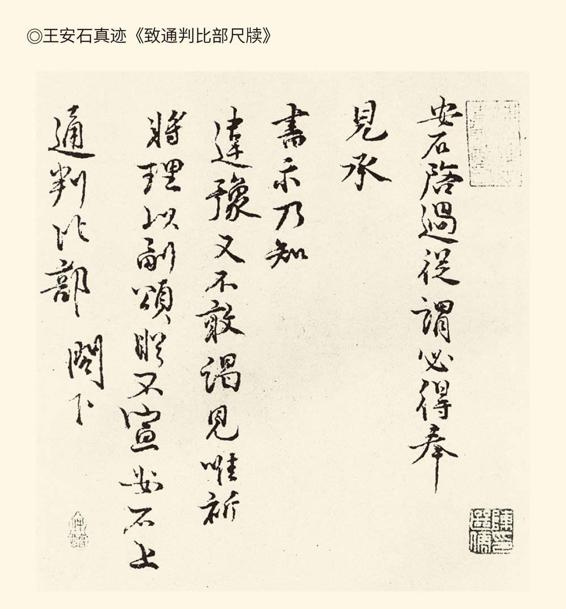 ◎王安石真迹《致通判比部尺牍》
安石啓過從謂必得奉
見承
書示乃知
違豫又不敢謁見唯祈
將理以副頌咏不宣安石上
通判比部 閤下